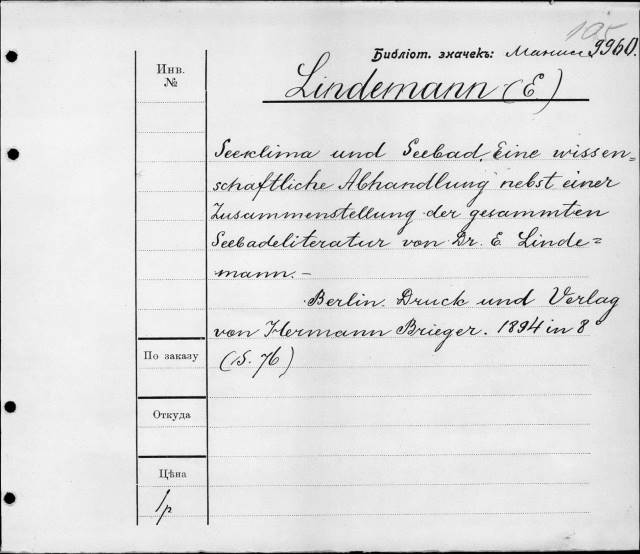 105
Библіот. значекъ: 9960.
Инв.
№
Lindemann (E.)
Seeklima und Seebad. Eine wissen=
schaftliche Abhandlung nebst einer
Zusammenstellung der gesammten
Seebadeliteratur von Dr. E. Linde=
mann.—
Berlin. Druck und Verlag
von Hermann Brieger. 1894 in 8°
По заказу
(S. 76)
Откуда
Цѣна
1р